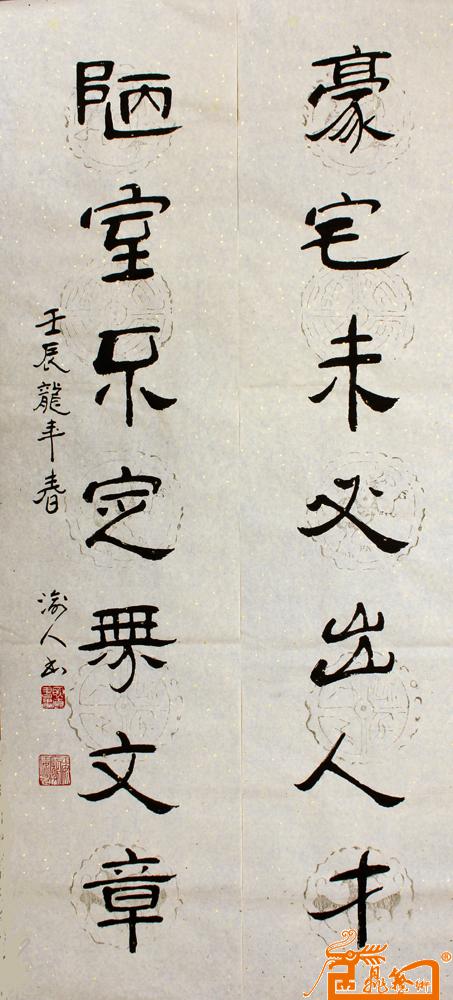 豪宅未必出人才
陋室不定無文章
壬辰龍年春
渝人書